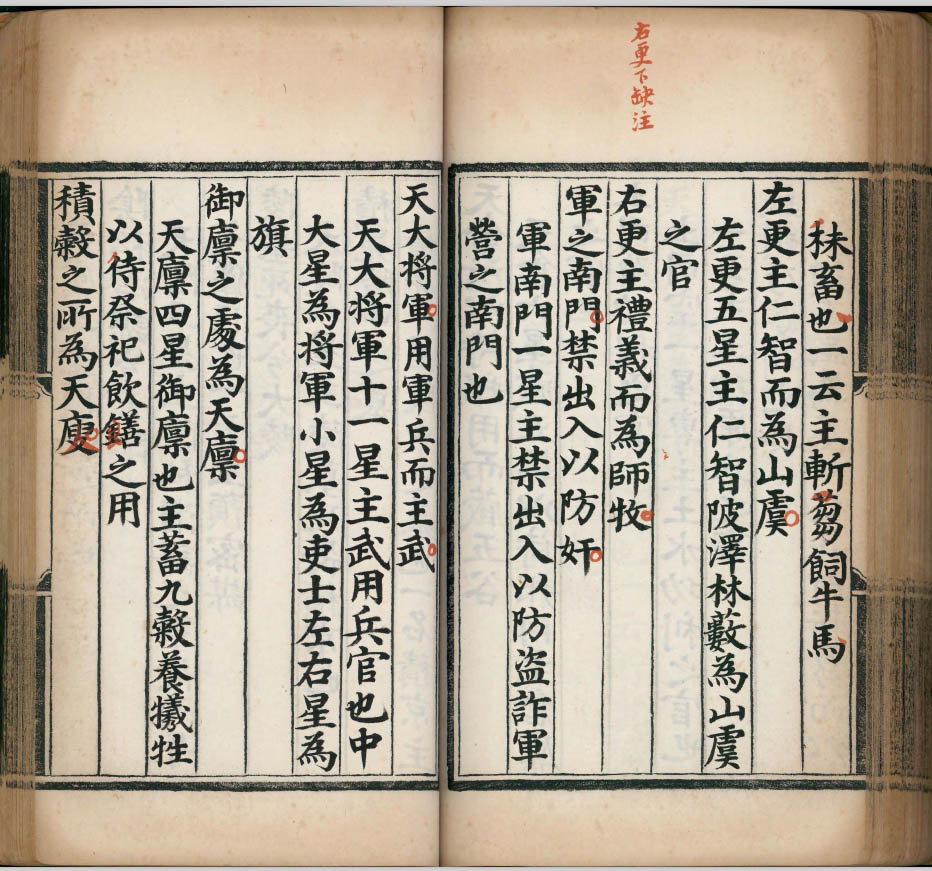 右更下缺注
秣畜也一云主斬芻飼牛馬
左更主仁智而為山虞
左更五星主仁智陂澤林藪為山虞
之官
右更主禮義而為師牧
軍之南門禁出入以防奸
軍南門一星主禁出入以防盗詐軍
營之南門也
天大将軍用軍兵而主武
天大将軍十一星主武用兵官也中
大星為将軍小星為吏士左右星為
旗
御廪之處為天廪
天廪四星御廪也主蓄九糓養犧牲
以待祭祀飲饍之用
積糓之所為天庾